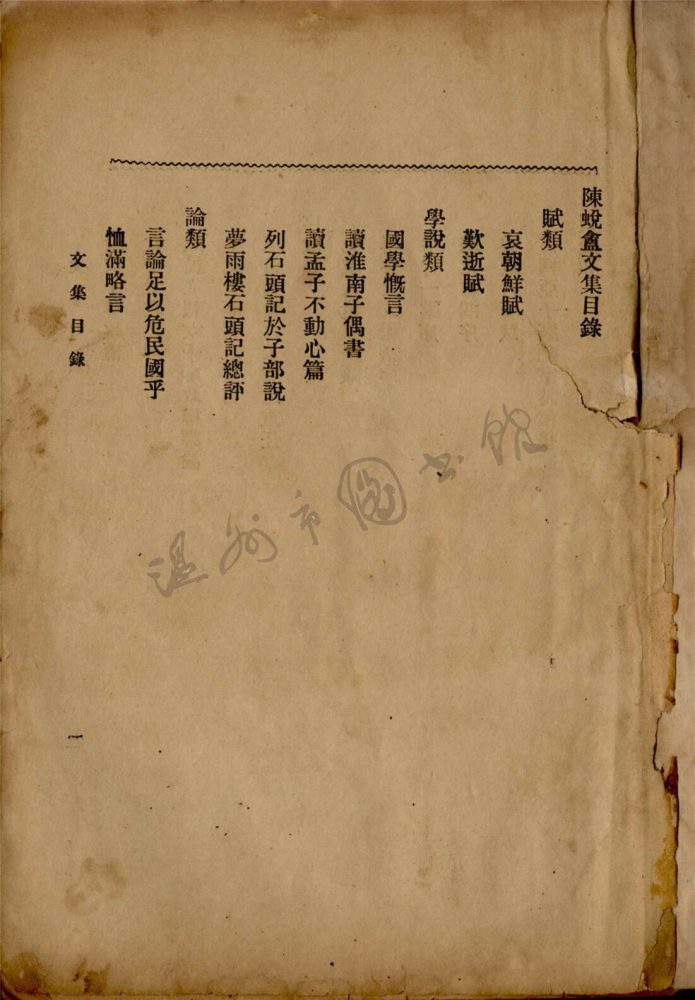 陳蛻盦文集目錄
賦類
哀朝鮮賦
歎逝賦
學說類
國學慨言
讀淮南子偶書
讀孟子不動心篇
列石頭記於子部說
夢雨樓石頭記總評
論類
言論足以危民國乎
恤滿略言
文集目錄
一
温州市图书馆